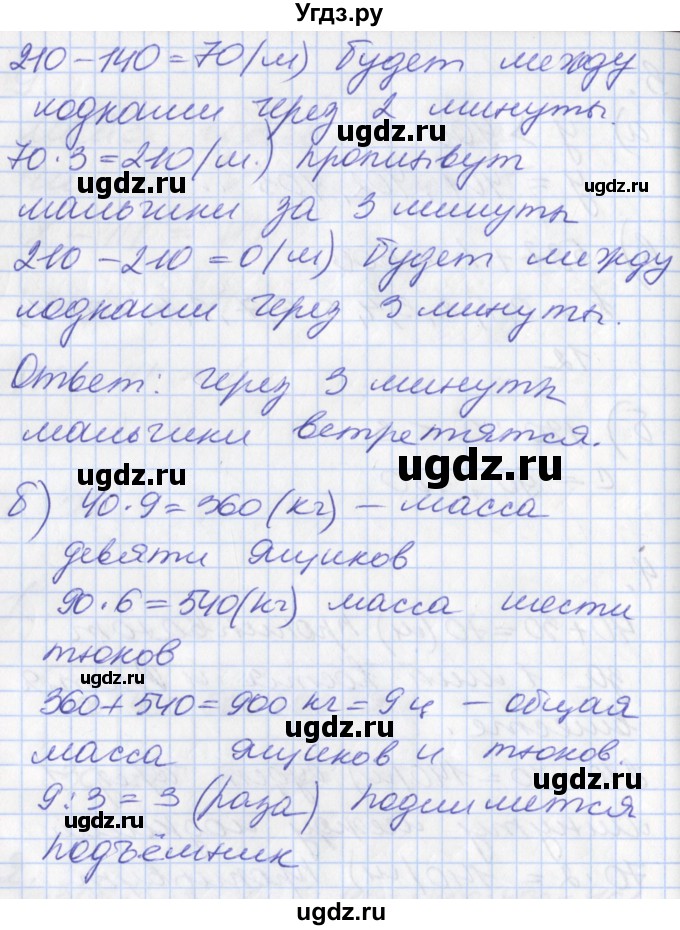 Угдз.ру
210 - 140 = 70 (м) будет между
лодками через 2 минуты.
ugdz.ru
70 · 3 = 210 (м.) проплывут
ugdz.ru
ugdz.ru
мальчики за 3 минуты
210 - 210 = 0 (м) будет между
лодками через 3 минуты.
Ответ: через 3 минуты
мальчики встретятся.
ugdz.ru
ugdz.ru
б) 40 · 9 = 360 (кг) - масса
ugdz.ru
девяти ящиков
90 · 6 = 540 (кг) масса шести
тюков
ugdz.ru
360 + 540 = 900 кг = 9 ц - общая
масса ящиков и тюков.
ugdz.ru
9 : 3 = 3 (раза) поднимется
ugdz.ru
подъёмник
ugdz.ru
ugdz.ru